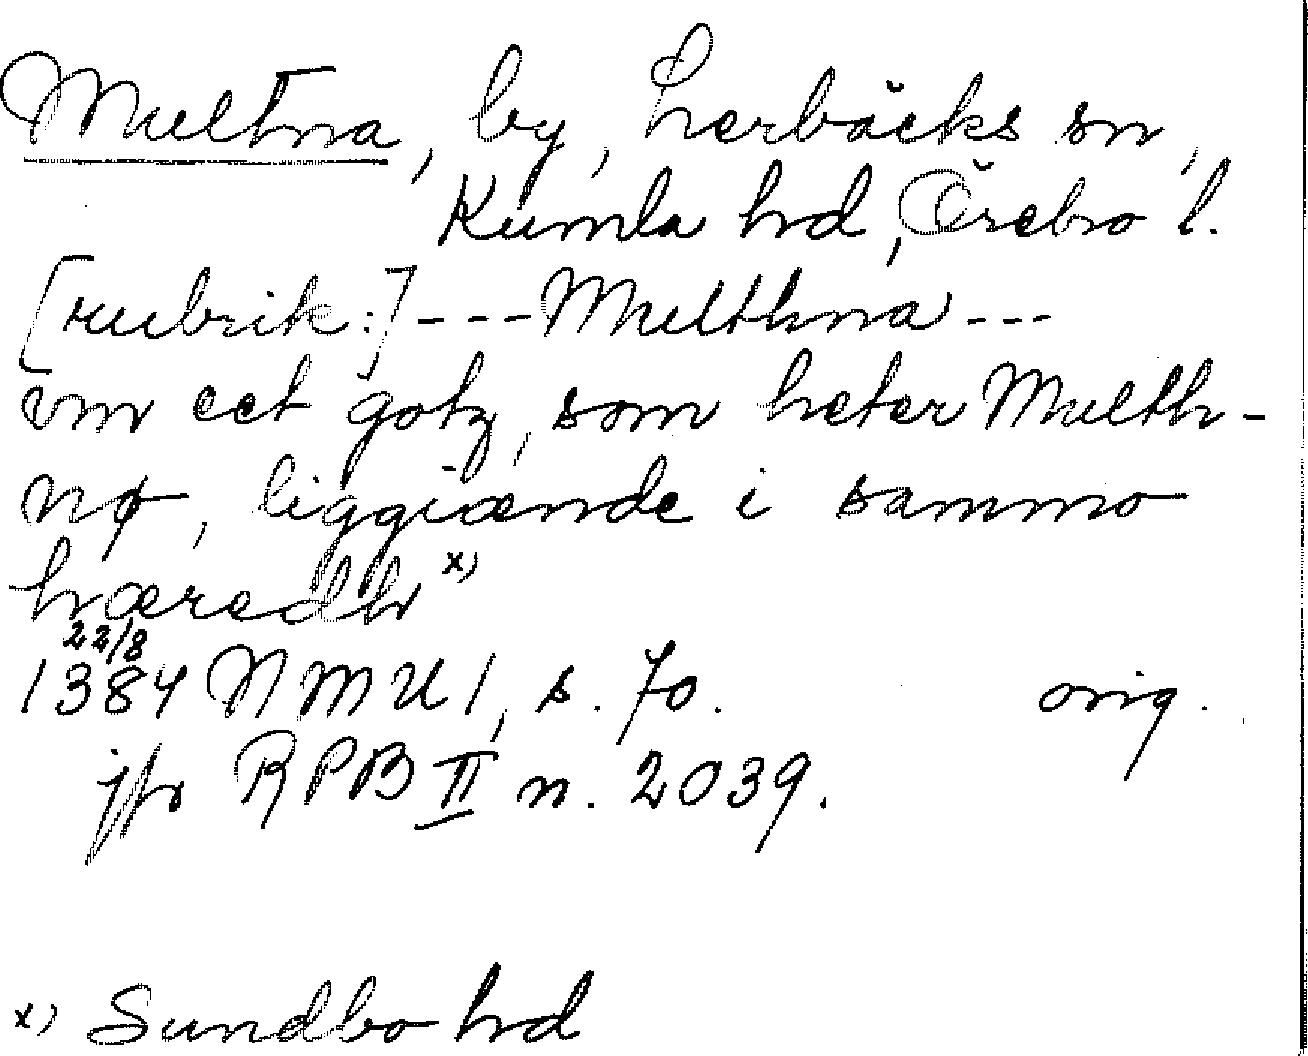 Multna, by, Lerbäcks sn,
Kumla hd, Örebro l.
[rubrik:] --- Multhna ---
vm eet gotz, som heter Multh-
nø, liggiænde i sammo
hæredh x)
22/8
1384 NMU 1, s. 70. orig.
jfr RPB II n. 2039.
x) Sundbo hd